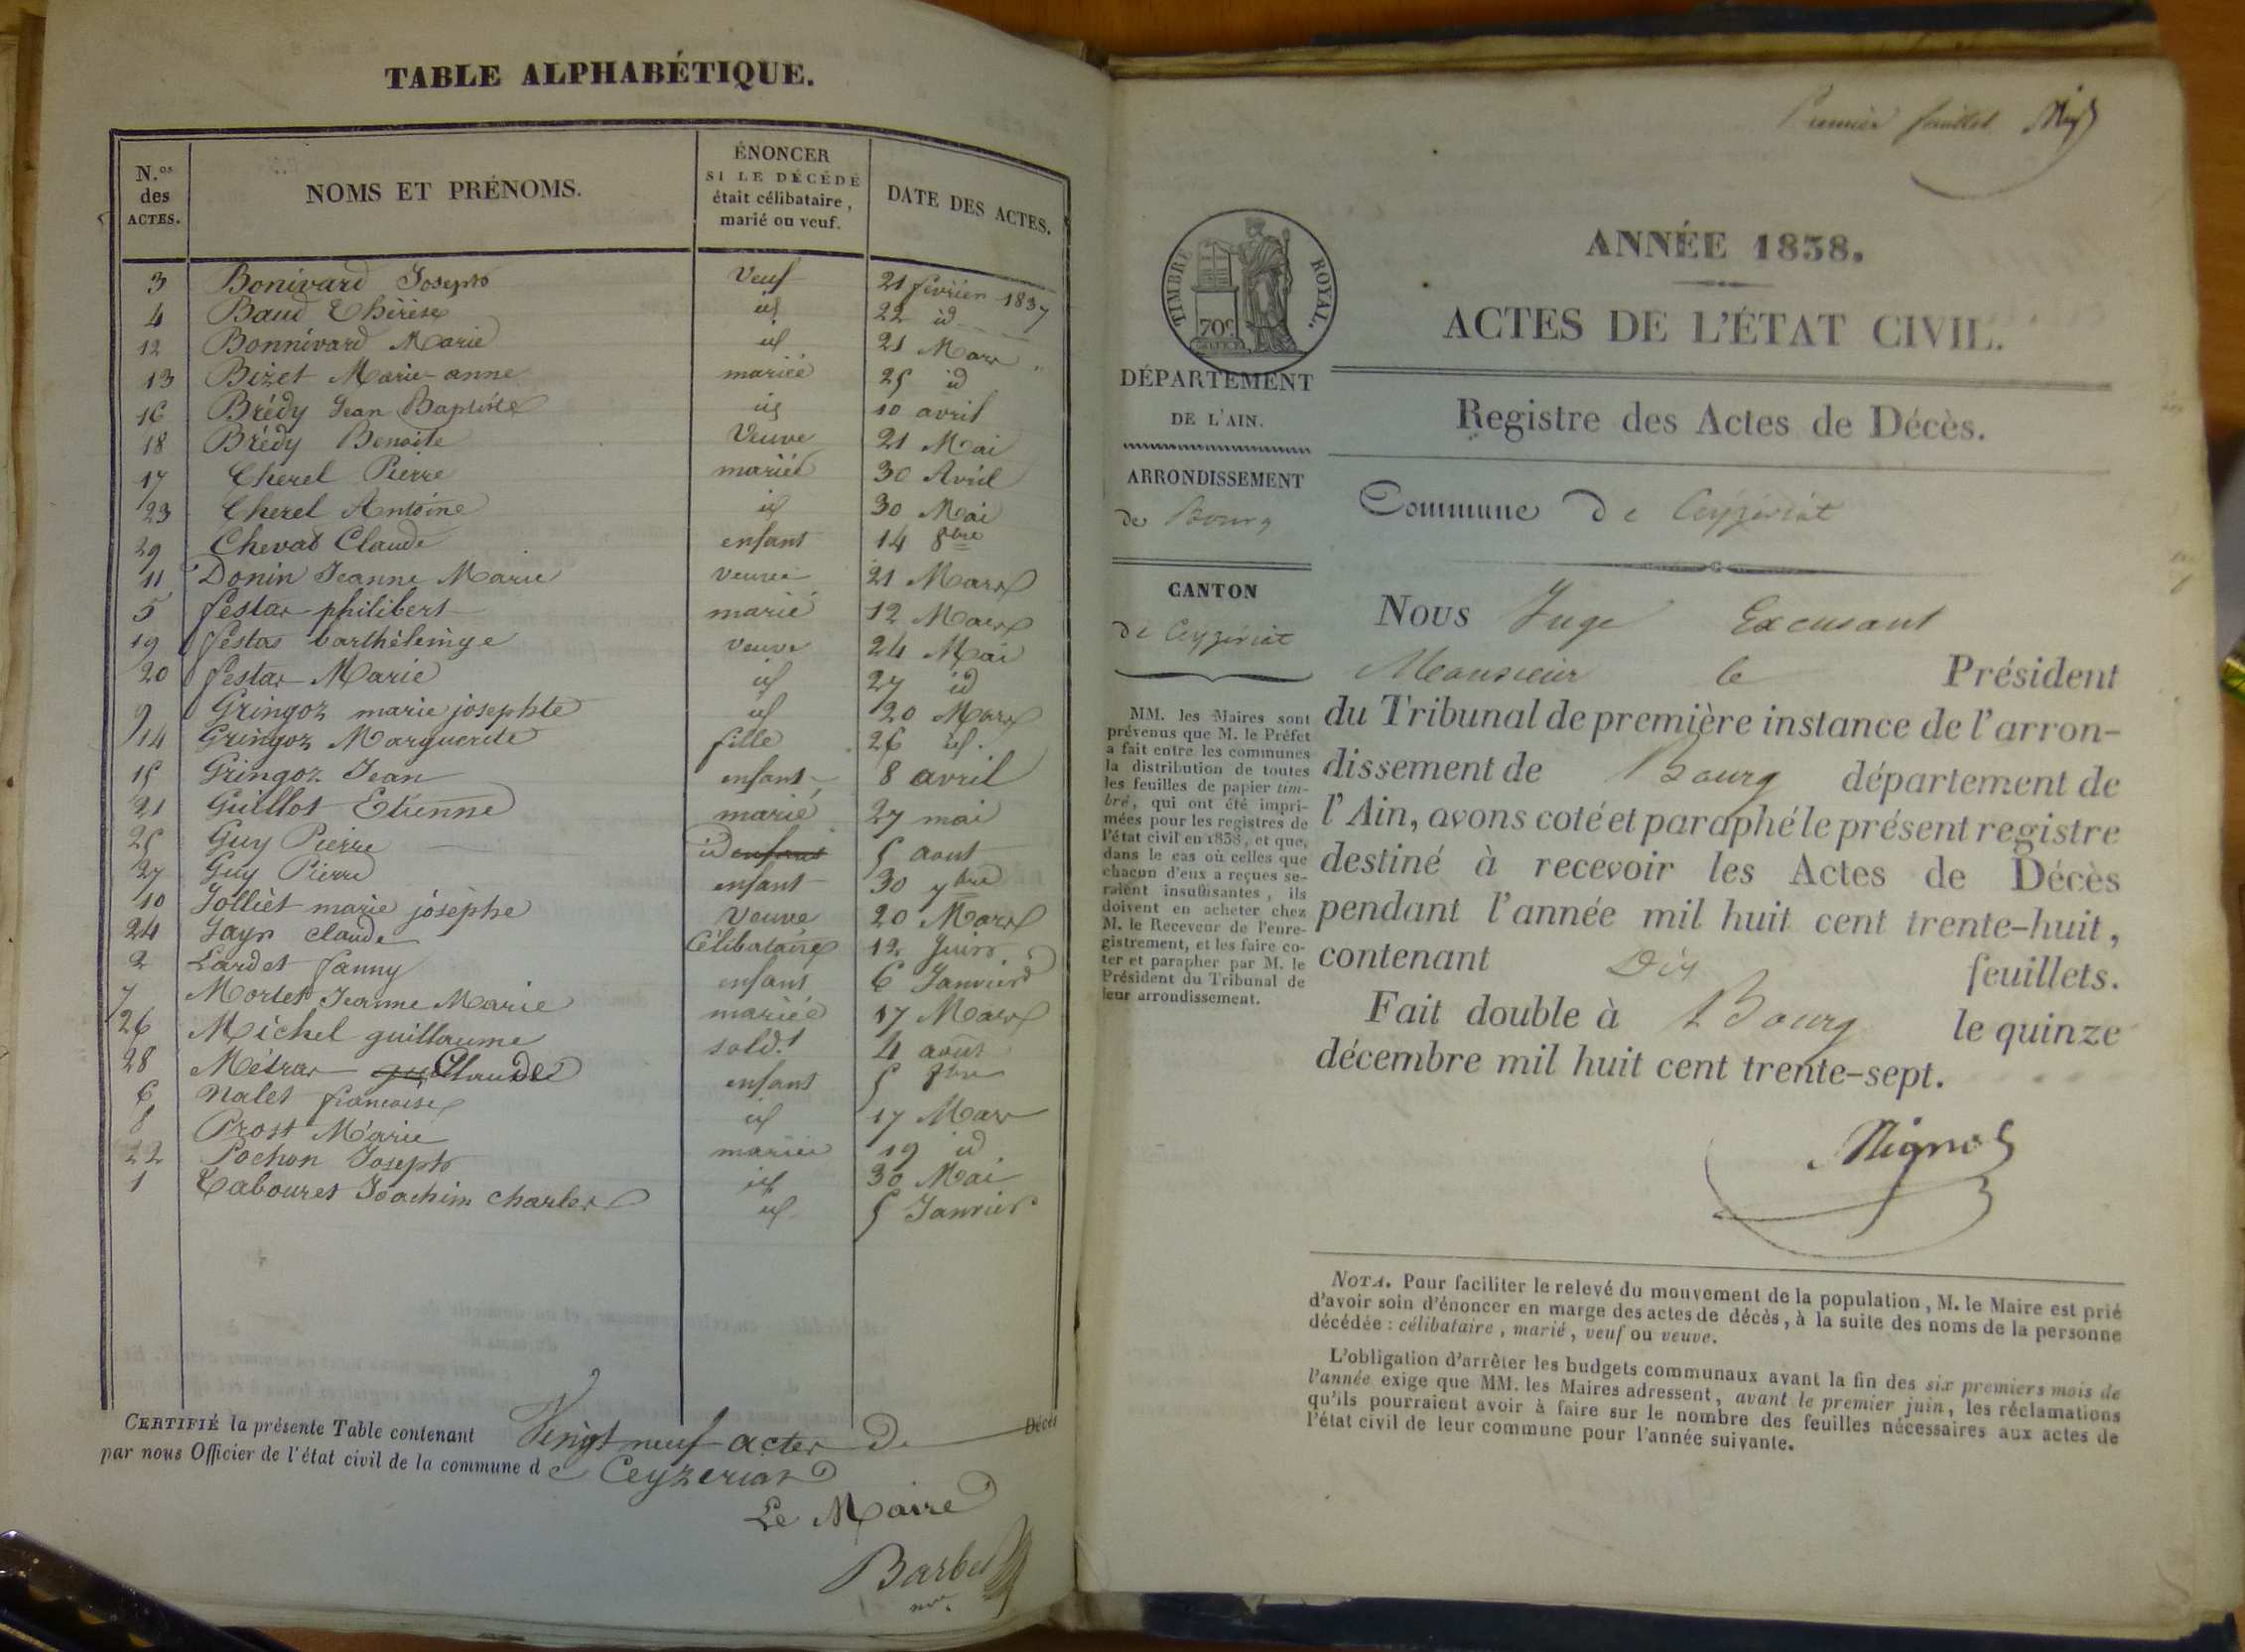 TABLE ALPHABÉTIQUE.
N.os des ACTES.
NOMS ET PRÉNOMS.
ÉNONCER
SI LE DÉCÉDÉ
était célibataire,
marié ou veuf.
DATE DES ACTES.
3 Bonivard Joseph Veuf 21 février 1837
4 Baud Thérèse id 22 id
12 Bonnivard Marie id 21 Mars
13 Bizet Marie-anne mariée 25 id
16 Brédy Jean Baptiste id 10 avril
18 Brédy Benoite Veuve 21 Mai
17 Cherel Pierre mariés 30 Avril
23 Cherel Antoine id 30 Mai
29 Chevat Claude enfant 14 8bre
11 Donin Jeanne Marie veuve 21 Mars
5 festas philibert marié 12 Mars
19 festas barthèlemye veuve 24 Mai
20 festas Marie id 27 id
9 Gringoz marie josephte id 20 Mars
14 Gringoz Marguerite fille 26 id.
15 Gringoz Jean enfant 8 avril
21 Guillot Etienne marié 27 mai
25 Guy Pierre id enfant 5 aout
27 Guy Pierre enfant 30 7bre
10 Jolliet marie josèphe Veuve 20 Mars
24 Jayr claude Célibataire 12 Juin
2 Lardet fanny enfant 6 Janvier
7 Mortet Jeanne Marie mariée 17 Mars
26 Michel guillaume sold.t 4 août
28 Métras Claude enfant 5 8bre
6 Nalet francoise id 17 Mars
8 Prost Marie mariée 19 id
22 Pochon Joseph id 30 Mai
1 Tabouret Joachim charles id 5 Janvier
CERTIFIÉ la présente Table contenant Vingt neuf actes de Décès
par nous Officier de l'état civil de la commune de Ceyzeriat
Le Maire
Barbet
Premier feuillet
TIMBRE ROYAL.
70c
ANNÉE 1838.
ACTES DE L'ÉTAT CIVIL.
DÉPARTEMENT
DE L'AIN.
Registre des Actes de Décès.
ARRONDISSEMENT
de Bourg
Commune de Ceyzériat
CANTON
de Ceyzériat
MM. les Maires sont
prévenus que M. le Préfet
a fait entre les communes
la distribution de toutes
les feuilles de papier tim-
bré, qui ont été impri-
mées pour les registres de
l'état civil en 1838, et que,
dans le cas où celles que
chacun d'eux a reçues se-
raient insuffisantes, ils
doivent en acheter chez
M. le Receveur de l'enre-
gistrement, et les faire co-
ter et parapher par M. le
Président du Tribunal de
leur arrondissement.
Nous Juge Excusant
Monsieur le Président
du Tribunal de première instance de l'arron-
dissement de Bourg département de
l'Ain, avons coté et paraphé le présent registre
destiné à recevoir les Actes de Décès
pendant l'année mil huit cent trente-huit,
contenant Dix feuillets.
Fait double à Bourg le quinze
décembre mil huit cent trente-sept.
NOTA. Pour faciliter le relevé du mouvement de la population, M. le Maire est prié
d'avoir soin d'énoncer en marge des actes de décès, à la suite des noms de la personne
décédée : célibataire, marié, veuf ou veuve.
L'obligation d'arrêter les budgets communaux avant la fin des six premiers mois de
l'année exige que MM. les Maires adressent, avant le premier juin, les réclamations
qu'ils pourraient avoir à faire sur le nombre des feuilles nécessaires aux actes de
l'état civil de leur commune pour l'année suivante.